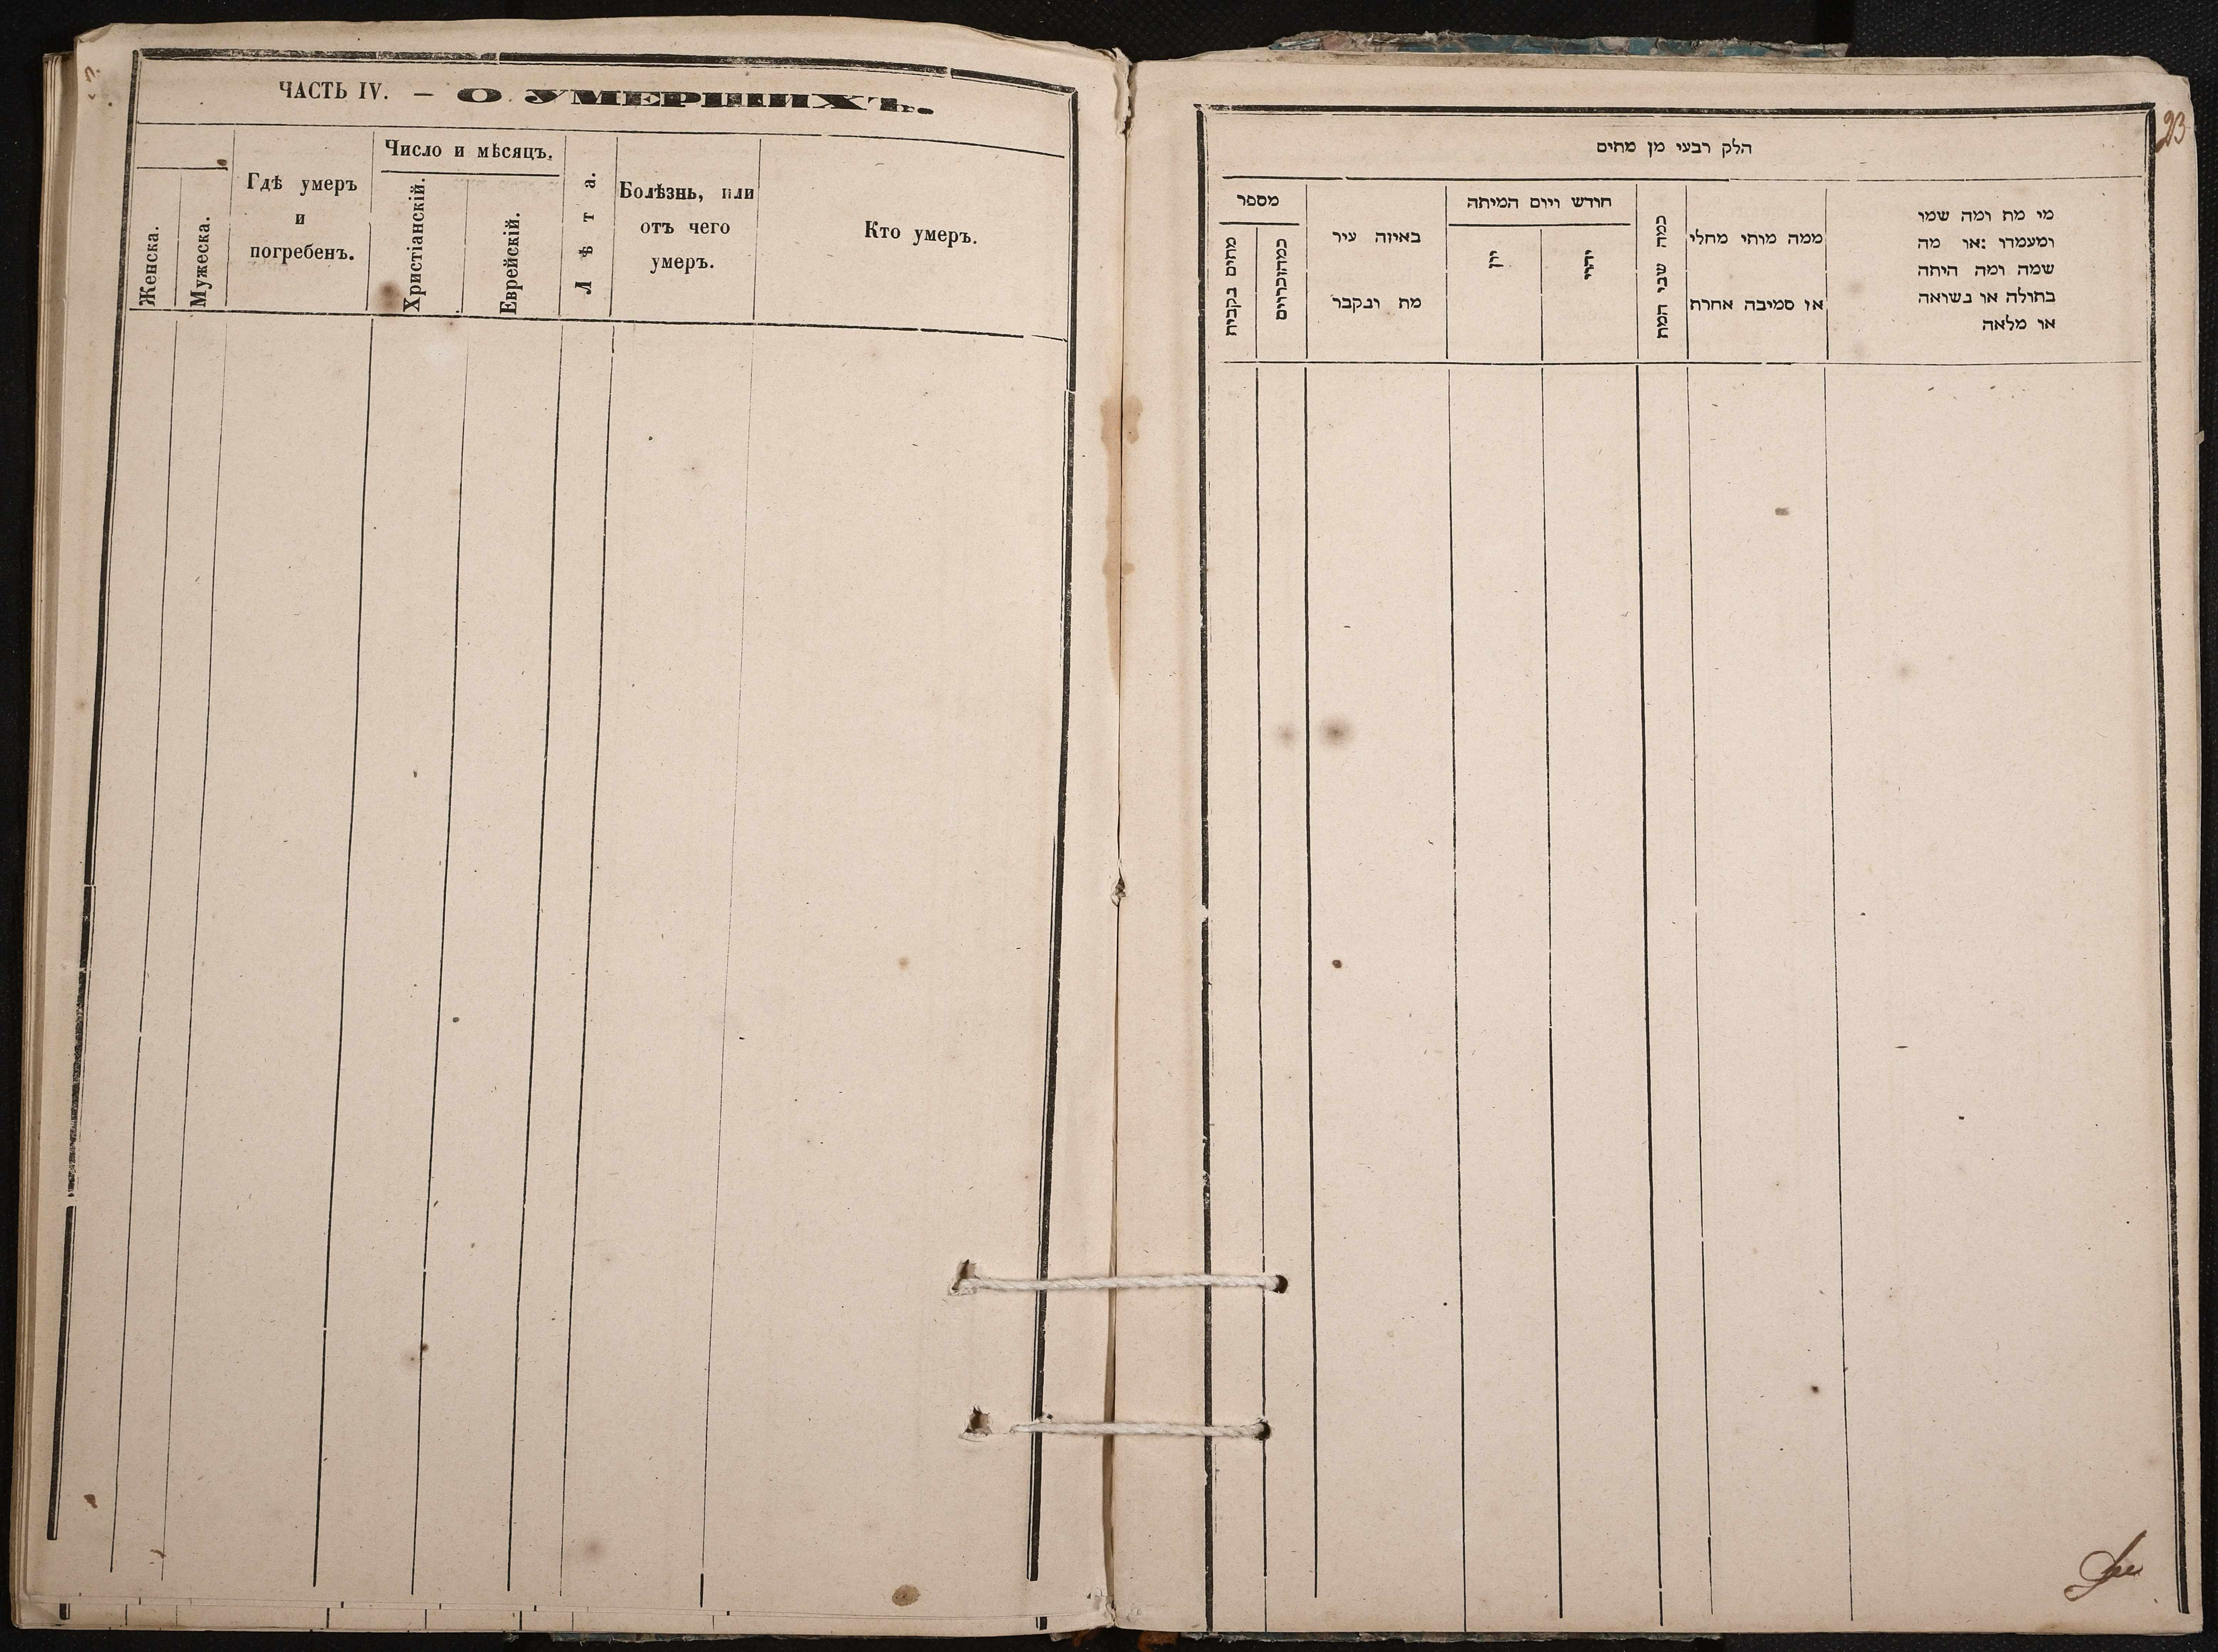 ЧАСТЬ IV. — О УМЕРШИХЪ.
Женска.
Мужеска.
Гдѣ умеръ
и
погребенъ.
Число и мѣсяцъ.
Христіанскій.
Еврейскій.
Лѣта.
Болѣзнь, или
отъ чего
умеръ.
Кто умеръ.
23
הלק רבעי מן מתים
מי מת ומה שמו
ומעמדו :או מה
שמה ומה היתה
בתולה או נשואה
או מלאה
ממה מותי מחלי
או סמיבה אחרת
כמה שני המת
חודש ויום המיתה
יהודי
יון
באיזה עיר
מת ונקבר
מספר